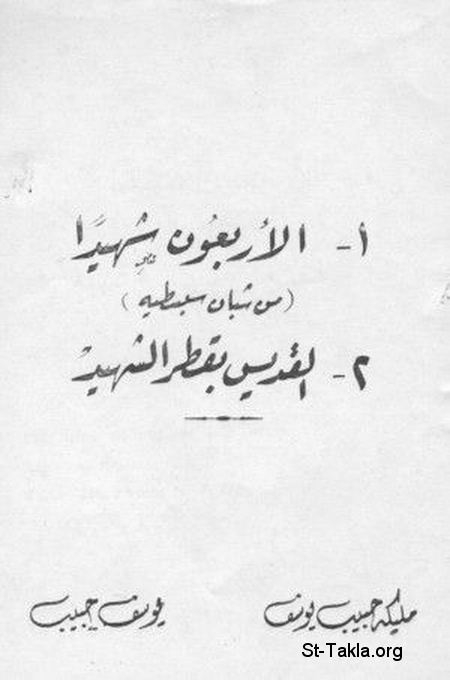 ١- الأربعون شهيدًا
(من شبان سبسطيه)
٢- القديس بقطر الشهيد
مليكه حبيب يوسف
يوسف حبيب
St-Takla.org